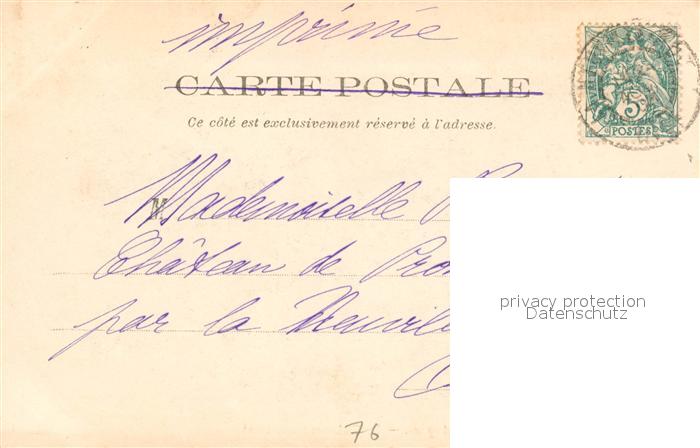 imprimé
CARTE POSTALE
Ce côté est exclusivement réservé à l'adresse.
5
POSTES
M
Mademoiselle
Château de
par la
privacy protection
Datenschutz
76